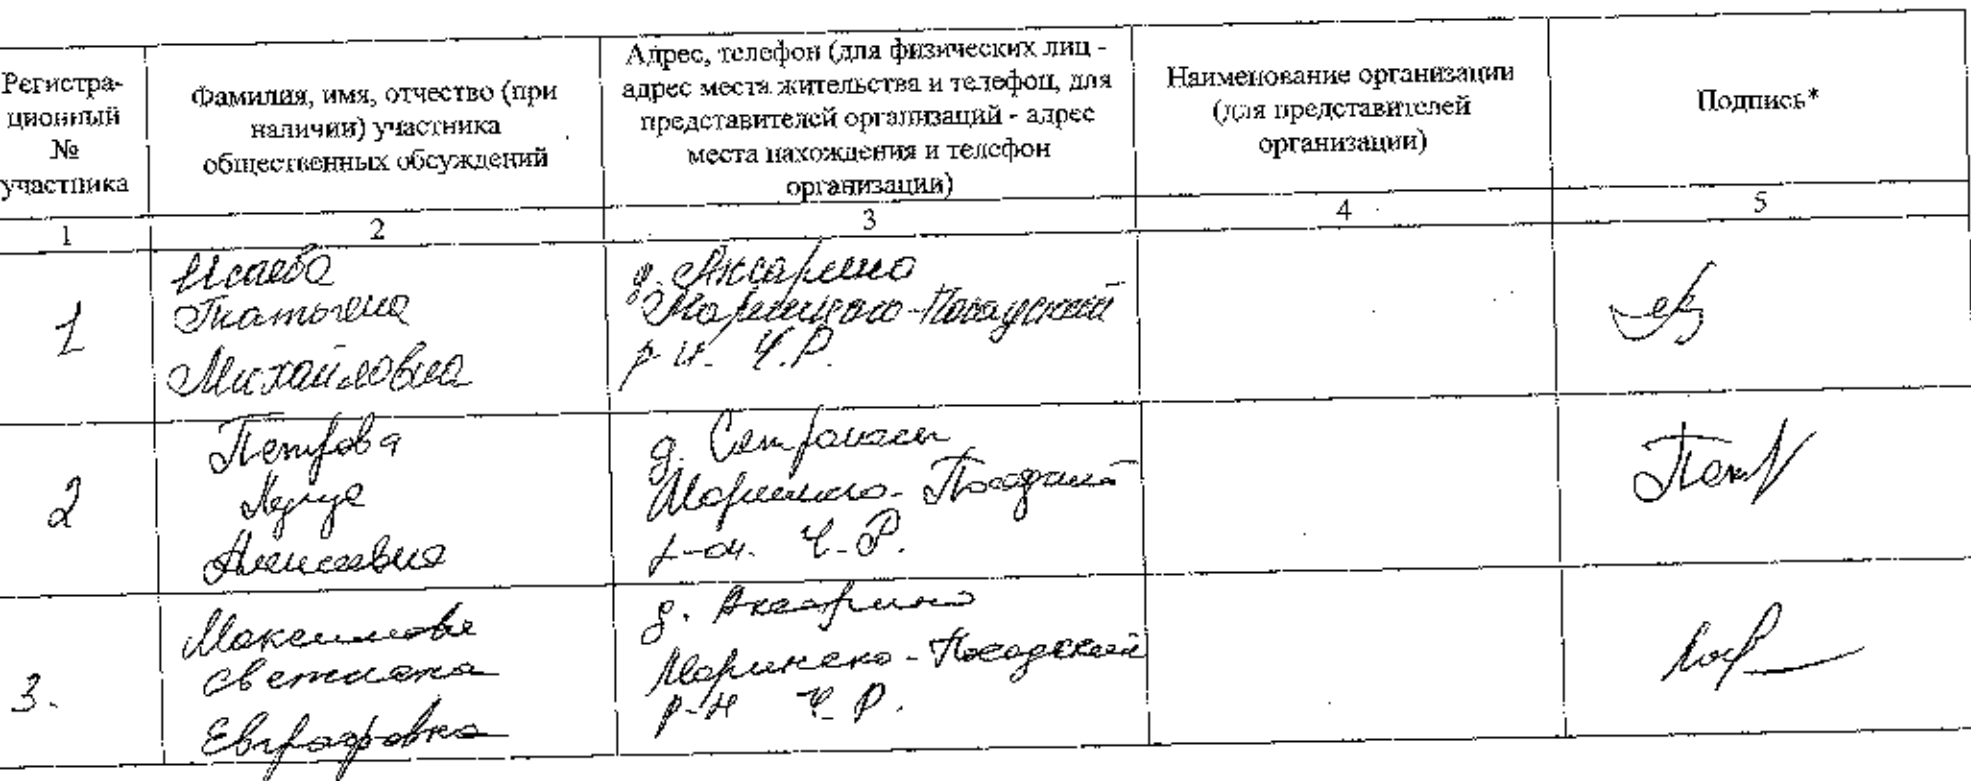 Регистра-
ционный
№
участника
Фамилия, имя, отчество (при
наличии) участника
общественных обсуждений
Адрес, телефон (для физических лиц -
адрес места жительства и телефон, для
представителей организаций - адрес
места нахождения и телефон
организации)
Наименование организации
(для представителей
организации)
Подпись*
1
2
3
4
5
1
Исаева
Татьяна
Михайловна
д. Аксарино
Мариинско-Посадский
р-н. Ч.Р.
2
Петрова
Алексеевна
д.
Мариинско-Посадский
р-н. Ч.Р.
3.
Максимова
Светлана
Евграфовна
д. Аксарино
Мариинско-Посадский
р-н Ч.Р.